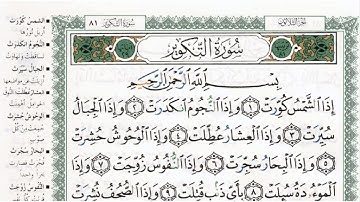 سورة التكوير
٨١
الجزء الثلاثون
سُورَةُ التَّكْوِيرِ
بِسْمِ اللَّهِ الرَّحْمَٰنِ الرَّحِيمِ
إِذَا الشَّمْسُ كُوِّرَتْ ١ وَإِذَا النُّجُومُ انكَدَرَتْ ٢ وَإِذَا الْجِبَالُ
سُيِّرَتْ ٣ وَإِذَا الْعِشَارُ عُطِّلَتْ ٤ وَإِذَا الْوُحُوشُ حُشِرَتْ
٥ وَإِذَا الْبِحَارُ سُجِّرَتْ ٦ وَإِذَا النُّفُوسُ زُوِّجَتْ ٧ وَإِذَا
الْمَوْءُۥدَةُ سُئِلَتْ ٨ بِأَيِّ ذَنبٍ قُتِلَتْ ٩ وَإِذَا الصُّحُفُ نُشِرَتْ
الشَّمْسُ كُوِّرَتْ
النُّجُومُ انكَدَرَتْ
الْجِبَالُ سُيِّرَتْ
الْعِشَارُ عُطِّلَتْ
الْوُحُوشُ حُشِرَتْ
الْبِحَارُ سُجِّرَتْ
النُّفُوسُ زُوِّجَتْ